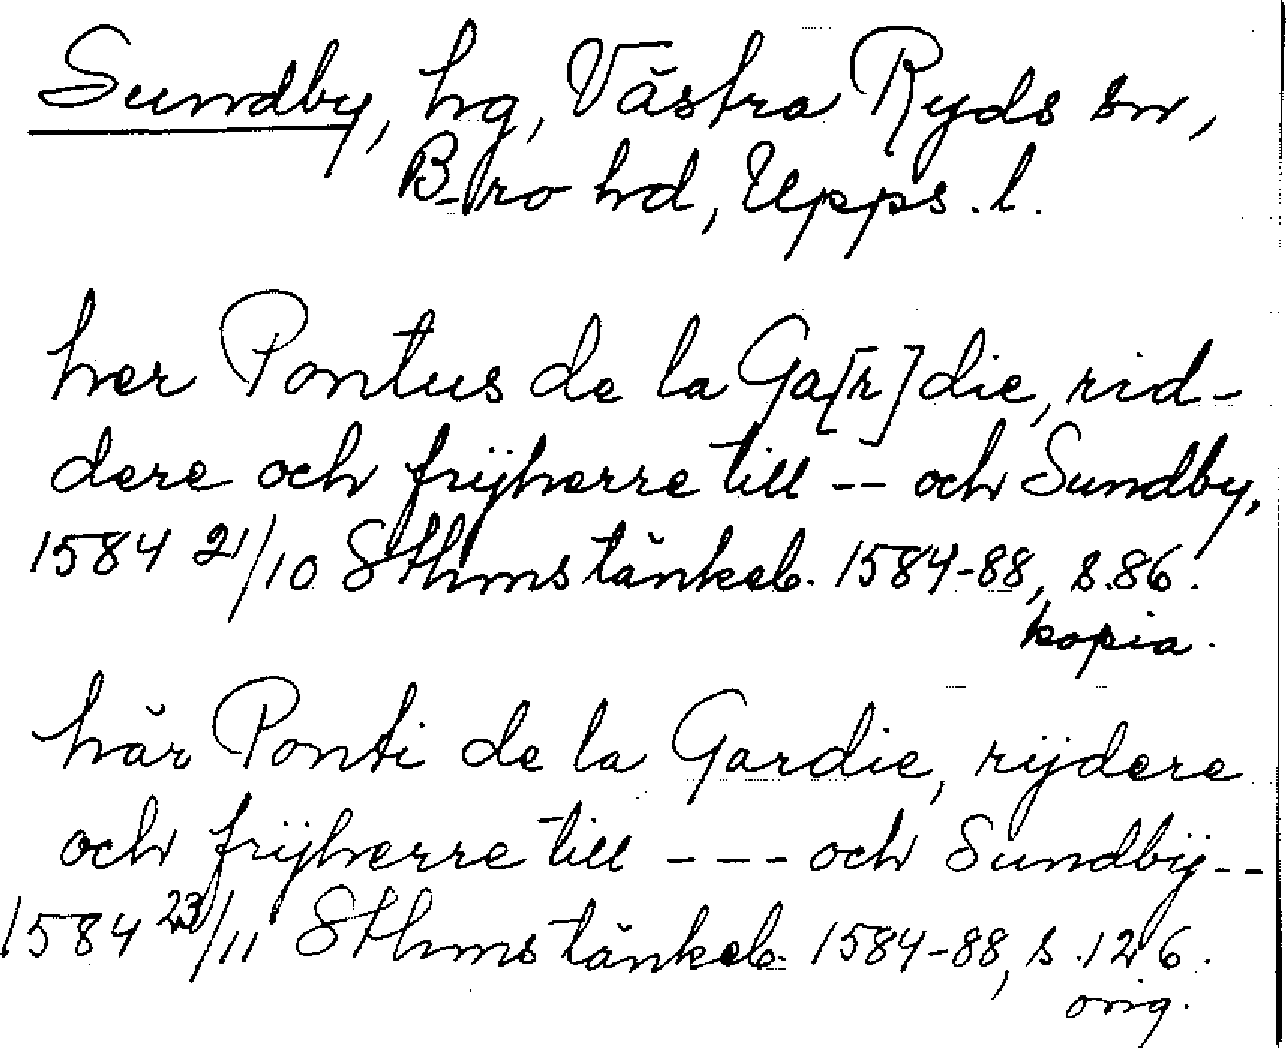 Sundby, hg, Västra Ryds sn,
Bro hd, Upps. l.
her Pontus de la Ga[r]die, rid-
dere och frijherre till -- och Sundby,
1584 21/10 Sthms tänkeb. 1584-88, s. 86.
kopia.
här Ponti de la Gardie, rijdere
och frijherre till --- och Sundbÿ--
1584 23/11 Sthms tänkeb. 1584-88, s. 126.
orig.